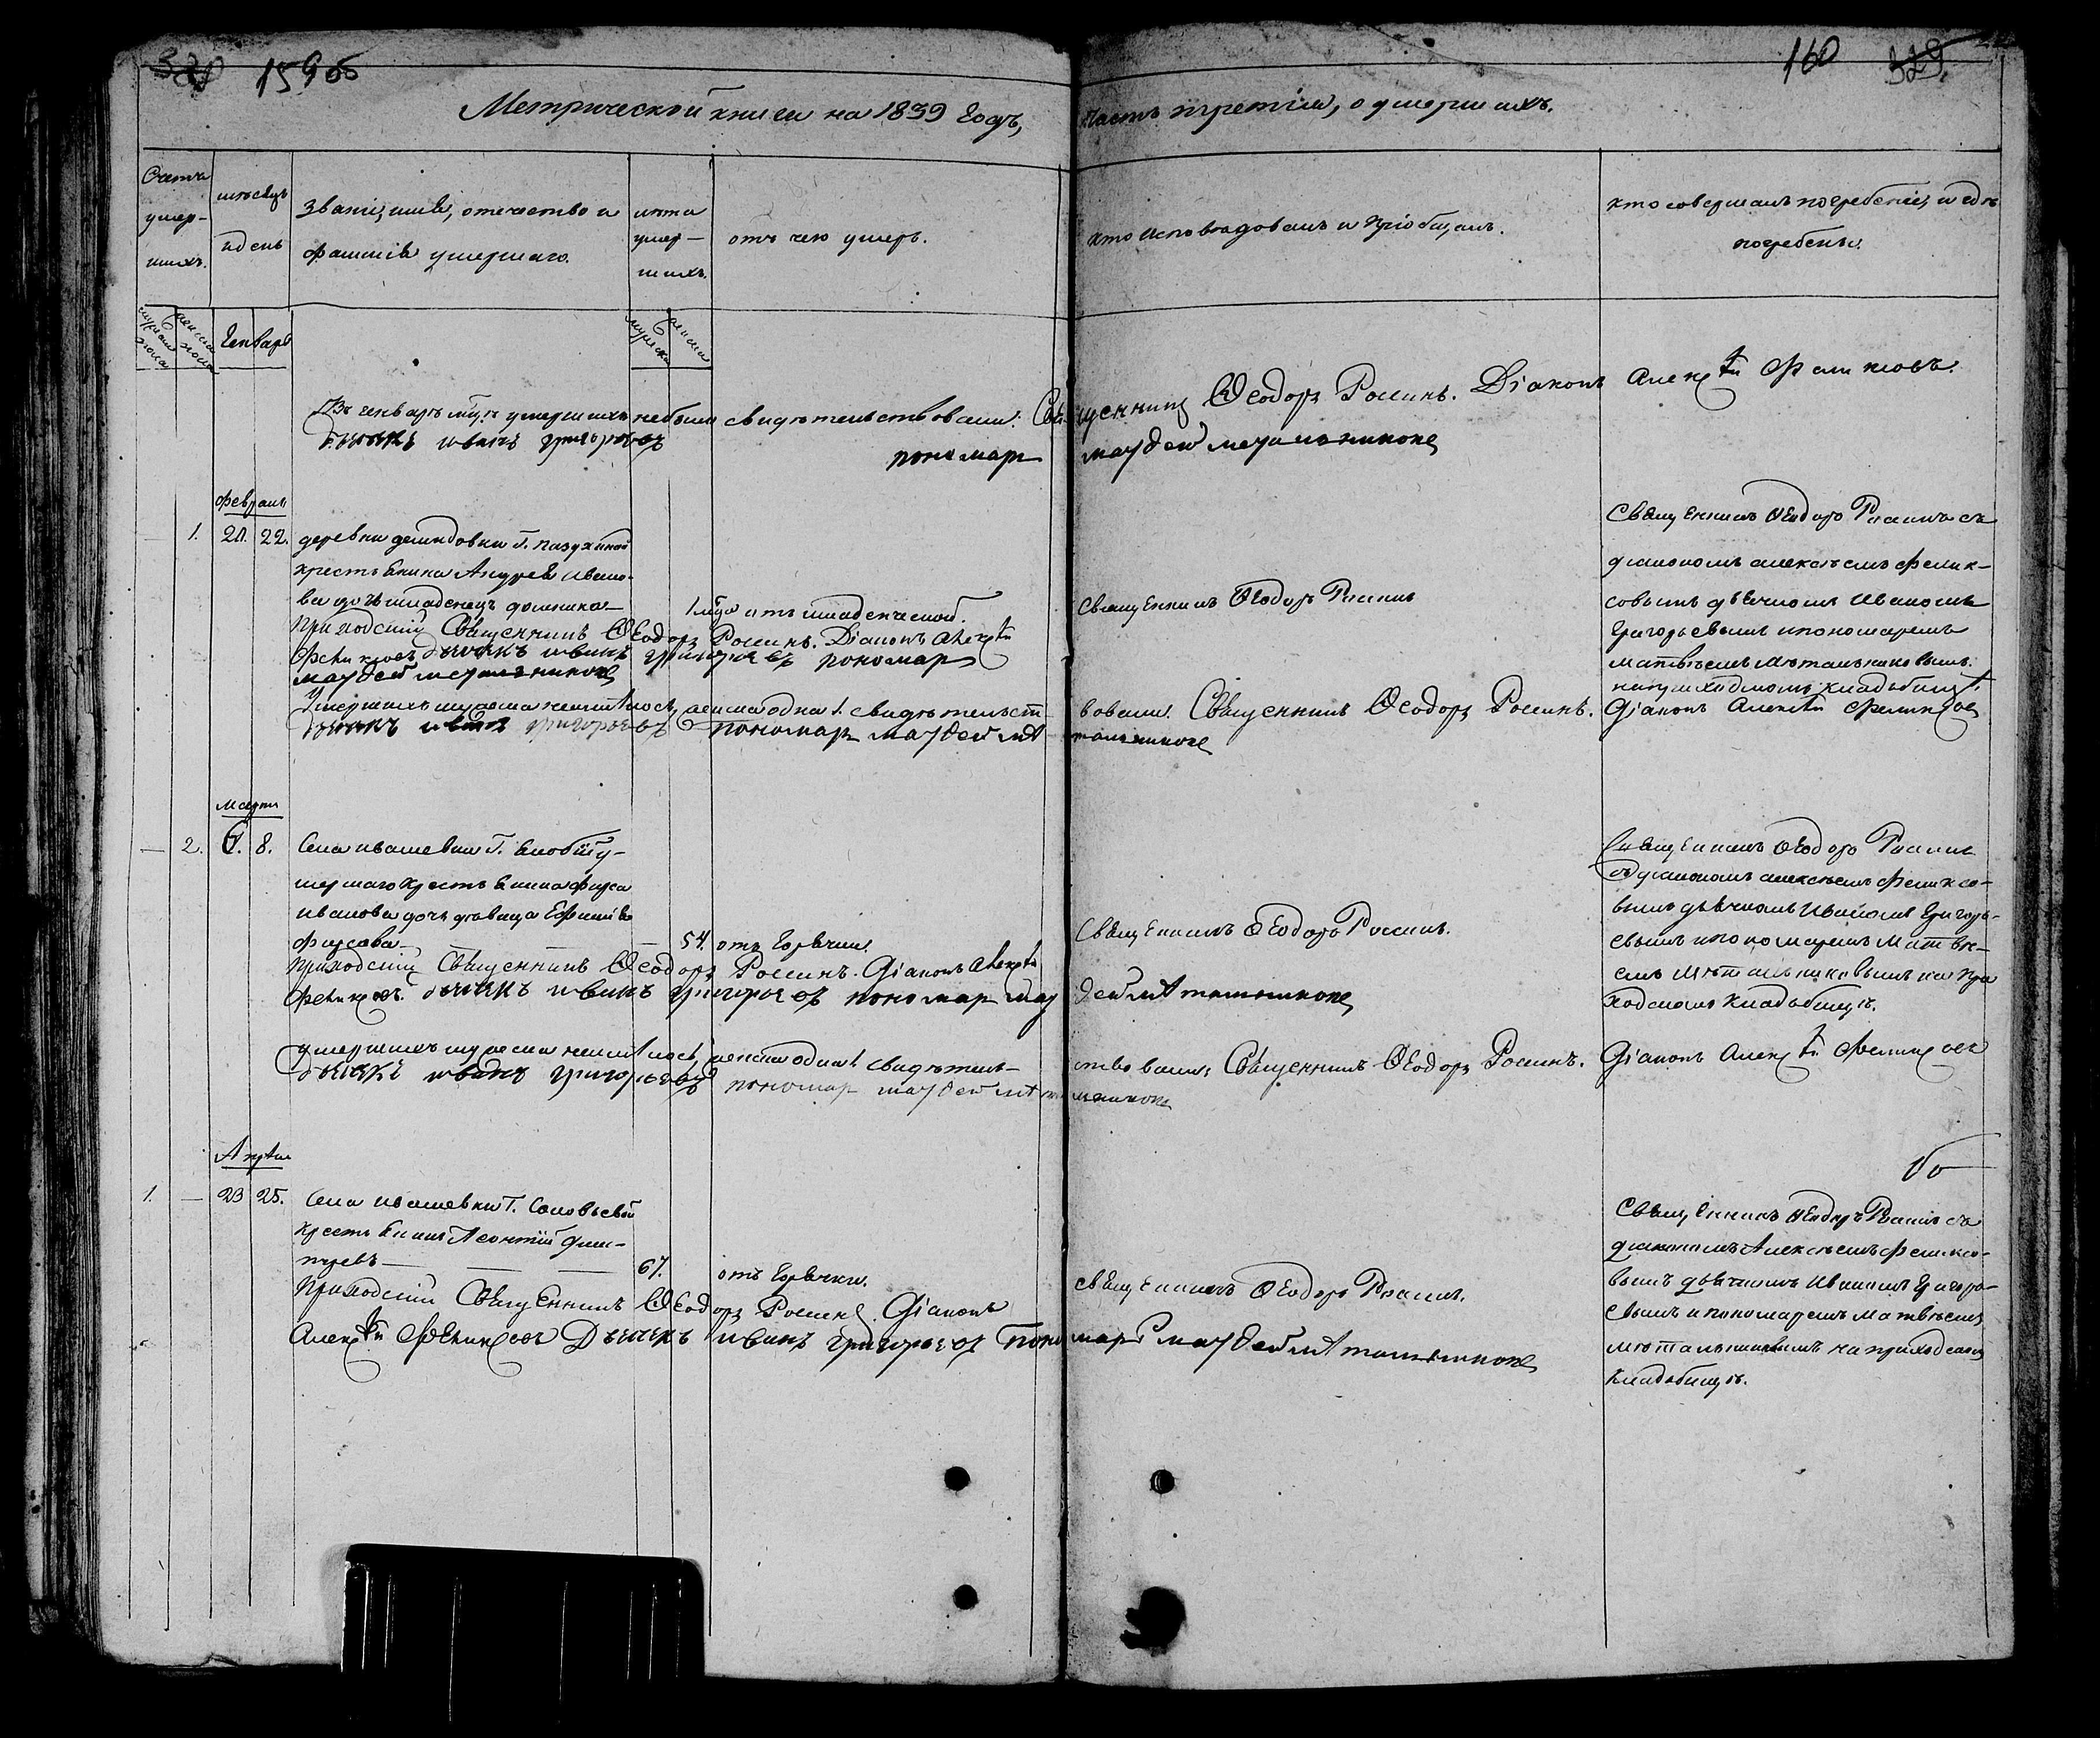 159об
160 329.
Метрической книги на 1839 годъ, Часть третія, о умершихъ.
Счетъ умер- шихъ.
мѣсяцъ и день
Званіе, имя, отечество и фамилія умершаго.
лѣта умер- шихъ.
отъ чего умеръ.
кто исповѣдовалъ и пріобщалъ.
кто совершалъ погребеніе, и гдѣ погребены.
мужеска пола
женска пола
Генварь
мужска
женска
Въ генварѣ мцѣ умершихъ небыло свидѣтельствовали: Священникъ Ѳеодоръ Россинъ. Діаконъ Алексѣй Феликсовъ
дьячекъ иванъ григорьевъ
пономарь матвей метальниковъ
Февраль
1. 21. 22. деревни демидовки Г. пазухиной
крестьянина Андрея ивано-
ва дочь младенецъ домника
1 мца отъ младенческой.
Священникъ Ѳеодоръ Россинъ
Священникъ Ѳеодоръ Россинъ съ
діакономъ алексѣемъ фелик
совымъ дьячкомъ Иваномъ
Григорьевымъ и пономаремъ
матвѣемъ метальниковымъ
на приходскомъ кладбищѣ.
Приходскій Священникъ Ѳеодоръ Россинъ. Діаконъ Алексѣй
Феликсовъ дьячекъ иванъ григорьевъ пономарь
матвей метальниковъ
Умершихъ мужеска неимѣлось, женска одна 1. свидѣтельст- вовали. Священникъ Ѳеодоръ Россинъ. Діаконъ Алексѣй Феликсовъ
дьячекъ иванъ григорьевъ пономарь матвей метальниковъ
Марта
— 2. 6. 8. Села ивашевки Г.
мершаго крестьянина фирса
иванова дочь дѣвица Ефимія
фирсова
54. отъ горячки.
Священникъ Ѳеодоръ Россинъ.
Священникъ Ѳеодоръ Россинъ
съ діакономъ алексѣемъ феликсо-
вымъ дьячкомъ Иваномъ Григорь-
евымъ и пономаремъ Матвѣ-
емъ метальниковымъ на при
ходскомъ кладбищѣ.
Приходскій Священникъ Ѳеодоръ Россинъ. Діаконъ Алексѣй
Феликсовъ. дьячекъ иванъ григорьевъ пономарь матвей метальниковъ
умершихъ мужеска неимѣлось, женска одна 1. свидѣтель- ствовали: Священникъ Ѳеодоръ Россинъ. Діаконъ Алексѣй Феликсовъ
дьячекъ иванъ григорьевъ пономарь матвей метальниковъ
Апрѣль
1. — 23 25. Села ивашевки Г. Соловьевой
крестьянинъ Леонтій Дми-
тревъ
67. отъ горячки.
священникъ Ѳеодоръ Россинъ.
Священникъ Ѳеодоръ Россинъ съ
діакономъ Алексѣемъ феликсо-
вымъ дьячкомъ Иваномъ Григорь-
евымъ и пономаремъ матвѣемъ
метальниковымъ на приходскомъ
кладбищѣ.
Приходскій Священникъ Ѳеодоръ Россинъ. Діаконъ
Алексѣй Феликсовъ Дьячекъ иванъ григорьевъ Пономарь матвей метальниковъ